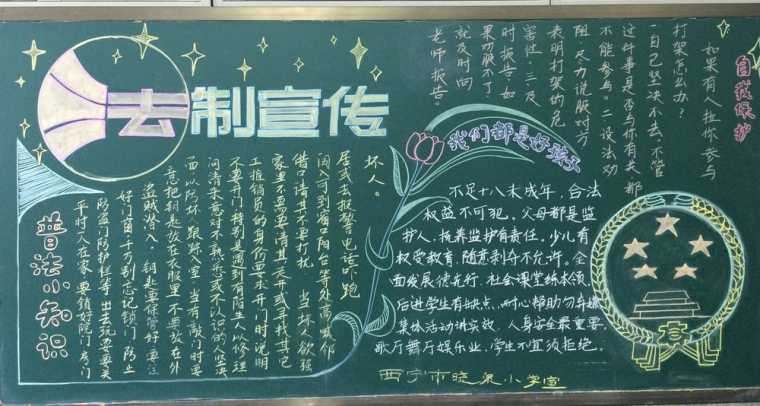 法制宣传
普法小知识
平时人在家,要锁好院门房门
防盗门防护栏等,出去玩要要关
好门窗,千万别忘记锁门,防止
盗贼潜入。钥匙要保管好,要注
意把钥匙放在衣服里,不要放在外
面,以防坏人跟踪入室。当有敲门时要
问清来意,对不熟悉或不认识的人坚决
不要开门,特别是遇到有陌生人以修理
工推销员的身份要求开门时,说明
家里不需要,请其走开或寻找其它
借口请其不要打扰。当坏人欲强
闯入可到窗口阳台等处高喊邻
居或去报警电话吓跑
坏人。
我们都是好孩子
不足十八未成年,合法
权益不可犯。父母都是监
护人,抚养监护有责任。少儿有
权受教育,随意剥夺不允许。全
面发展德先行,社会课堂练本领。
后进学生有缺点,耐心帮助勿弃嫌
集体活动讲实效,人身安全最重要。
歌厅舞厅娱乐业,学生不宜须拒绝。
西宁市晓泉小学宣
自我保护
如果有人拉你参与
打架怎么办?
一自己坚决不去,不管
这件事是否与你有关,都
不能参与。二设法劝
阻,尽力说服对方
表明打架的危
害性。三,及
时报告,如
果劝服不了,
就及时向
老师报告。